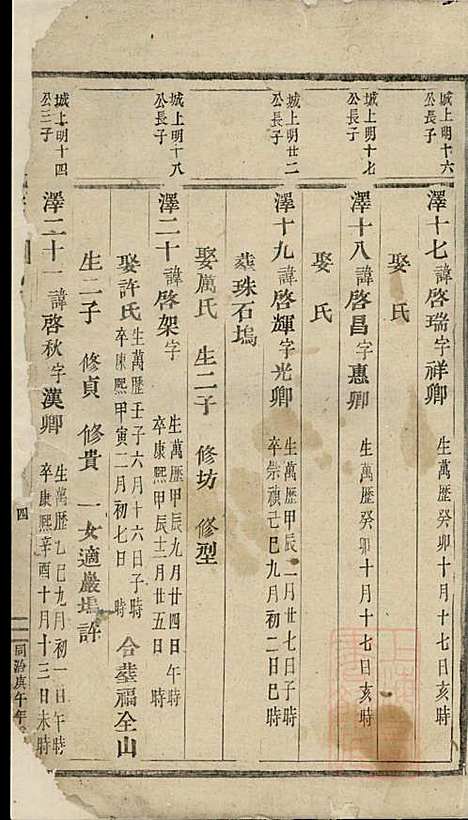 城上明十六
公長子
澤十七諱啓瑞字祥卿 生萬歷癸卯十月十七日亥時
娶 氏
城上明十七
公長子
澤十八諱啓昌字惠卿 生萬歷癸卯十月十七日亥時
娶 氏
城上明廿二
公長子
澤十九諱啓輝字光卿 生萬歷甲辰一月廿七日子時
卒崇禎己巳九月初二日巳時
葬珠石塢
娶厲氏 生二子 修坊 修型
城上明十八
公長子
澤二十諱啓架字 生萬歷甲辰九月廿四日午時
卒康熙甲辰十二月廿五日 時
娶許氏 生萬歷壬子六月十六日子時
卒康熙甲寅二月初七日 時 合葬福全山
生二子 修貞 修貴 一女適巖塢許
城上明十四
公三子
澤二十一諱啓秋字漢卿 生萬歷乙巳九月初一日午時
卒康熙辛酉十月十三日未時
四
同治庚午年